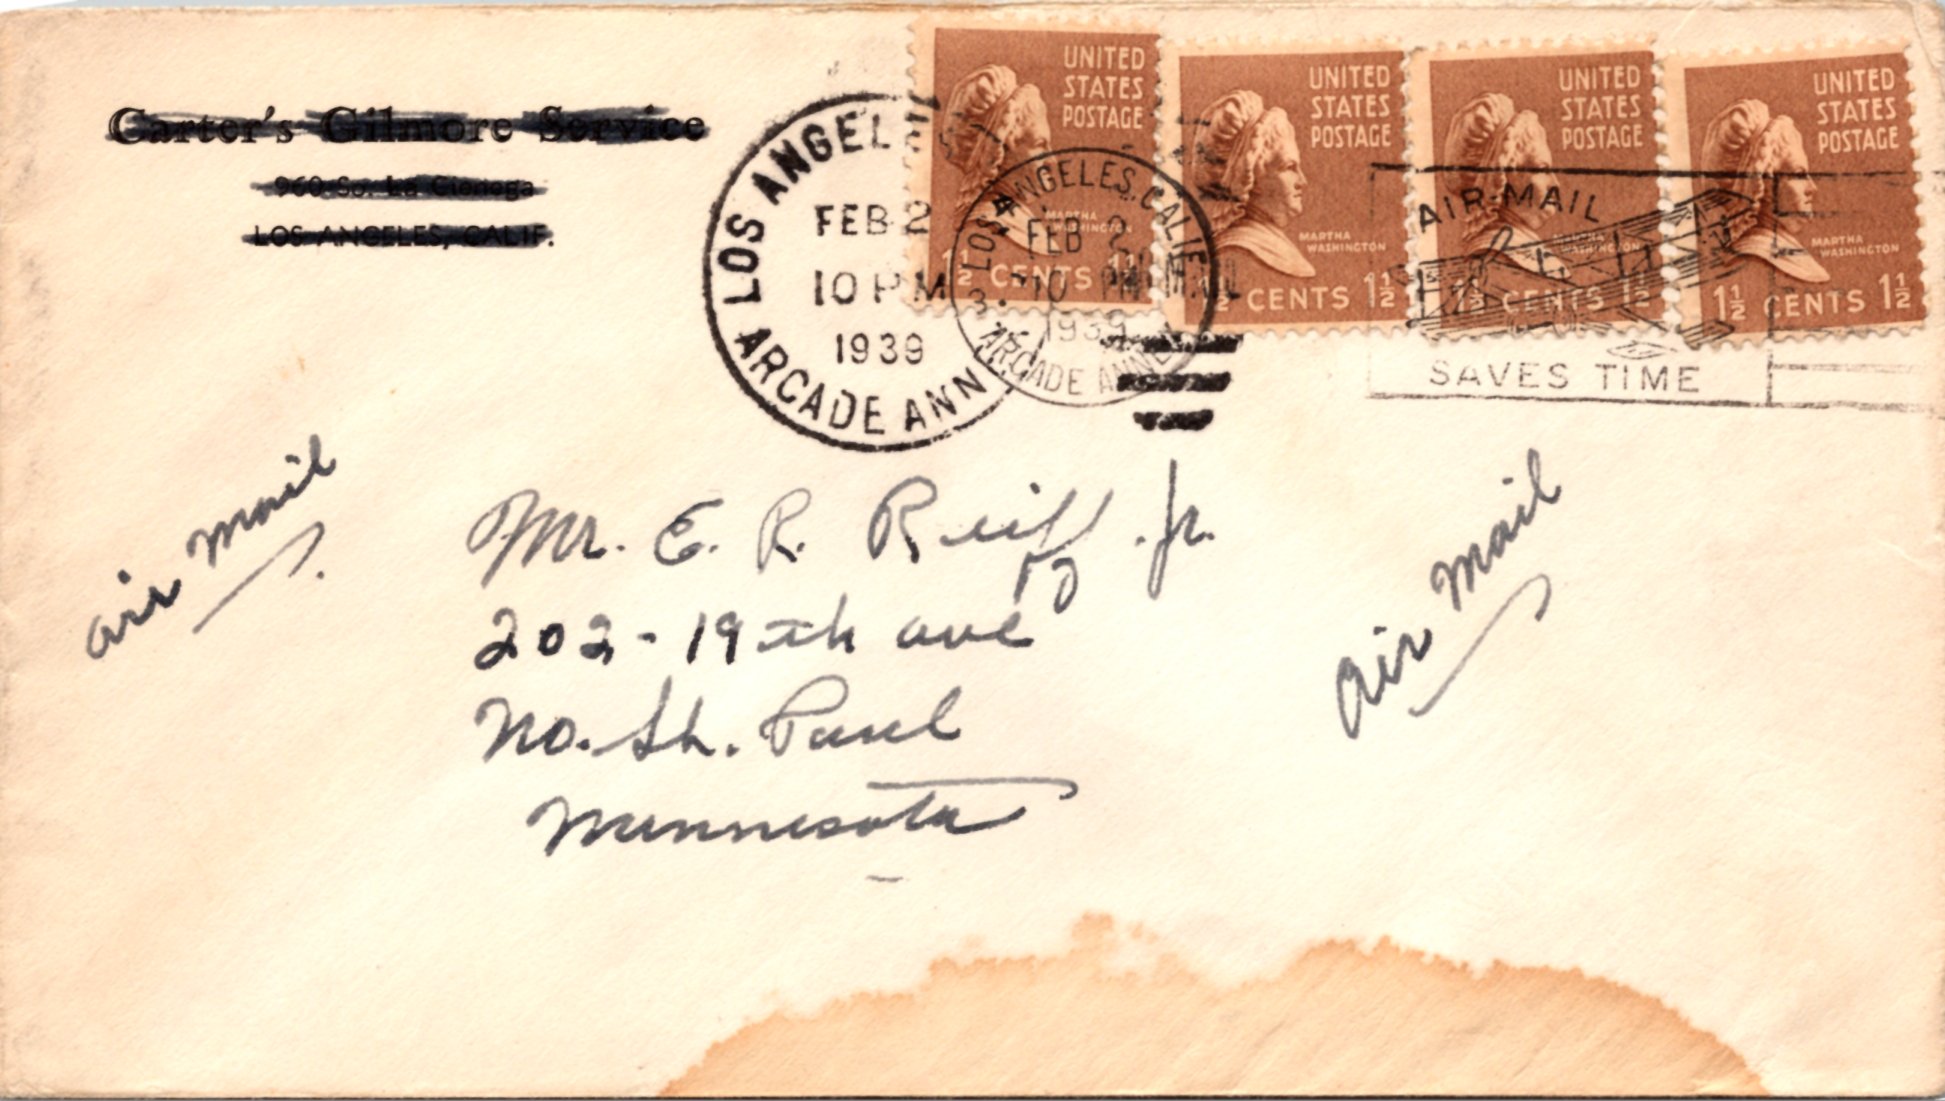 Carter's Gilmore Service
960 So. La Cienega
LOS ANGELES, CALIF.
LOS ANGEL
FEB 2
10 PM
1939
ARCADE ANN
LOS ANGELES, CALIF.
FEB 2
10 PM
1939
ARCADE ANNEX
UNITED
STATES
POSTAGE
MARTHA
WASHINGTON
1½ CENTS 1½
UNITED
STATES
POSTAGE
MARTHA
WASHINGTON
½ CENTS 1½
UNITED
STATES
POSTAGE
MARTHA
WASHINGTON
1½ CENTS 1½
UNITED
STATES
POSTAGE
MARTHA
WASHINGTON
1½ CENTS 1½
AIR MAIL
SAVES TIME
air mail
Mr. E. R. Reiff Jr.
202 - 19th ave
No. St. Paul
Minnesota
air mail